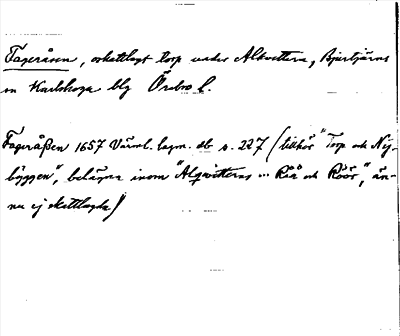 Fageråsen, oskattlagt torp under Alkvettern, Bjurtjärns
sn Karlskoga blg Örebro l.
Fageråßen 1657 Värml. lagm. db s. 227 (tillhör "Torp och Nij-
byggen", belägna inom "Alqwitterns ... Råå och Röör", än-
nu ej skattlagda)